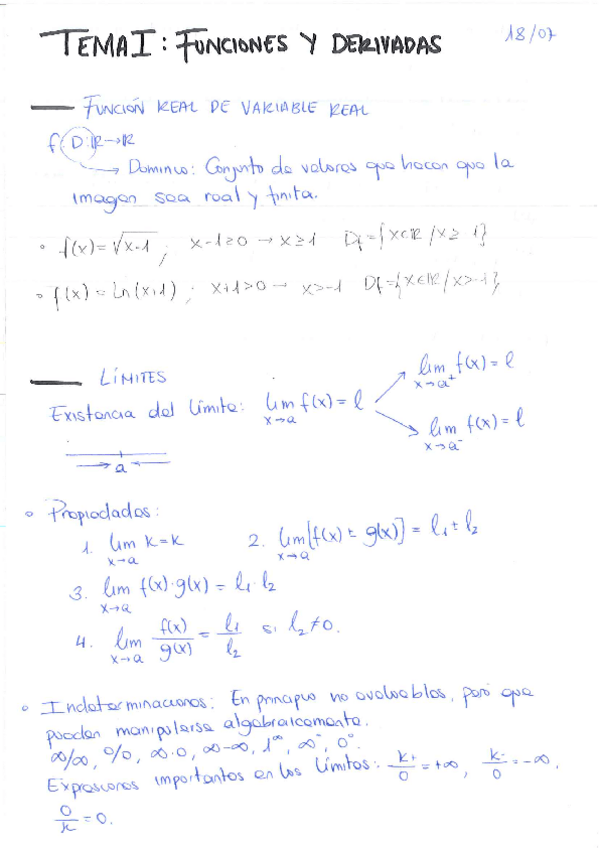 TEMA I: FUNCIONES Y DERIVADAS 18/07
FUNCIÓN REAL DE VARIABLE REAL
f D:ℝ→ℝ
Dominio: Conjunto de valores que hacen que la
imagen sea real y finita.
• f(x)=√x-1; x-1≥0 → x≥1 Df={x∈ℝ/x≥1}
• f(x)=ln(x+1); x+1>0 → x>-1 Df={x∈ℝ/x>-1}
LÍMITES
Existencia del límite: lim x→a f(x)=l
lim x→a⁺ f(x)=l
lim x→a⁻ f(x)=l
a
• Propiedades:
1. lim x→a k=k 2. lim x→a [f(x)±g(x)]=l₁±l₂
3. lim x→a f(x)·g(x)=l₁·l₂
4. lim x→a f(x)/g(x)=l₁/l₂ si l₂≠0.
• Indeterminaciones: En principio no evaluables, pero que
pueden manipularse algebraicamente.
∞/∞, 0/0, ∞·0, ∞-∞, 1^∞, 0°.
Expresiones importantes en los límites: k+/0=+∞, k-/0=-∞,
0/k=0.